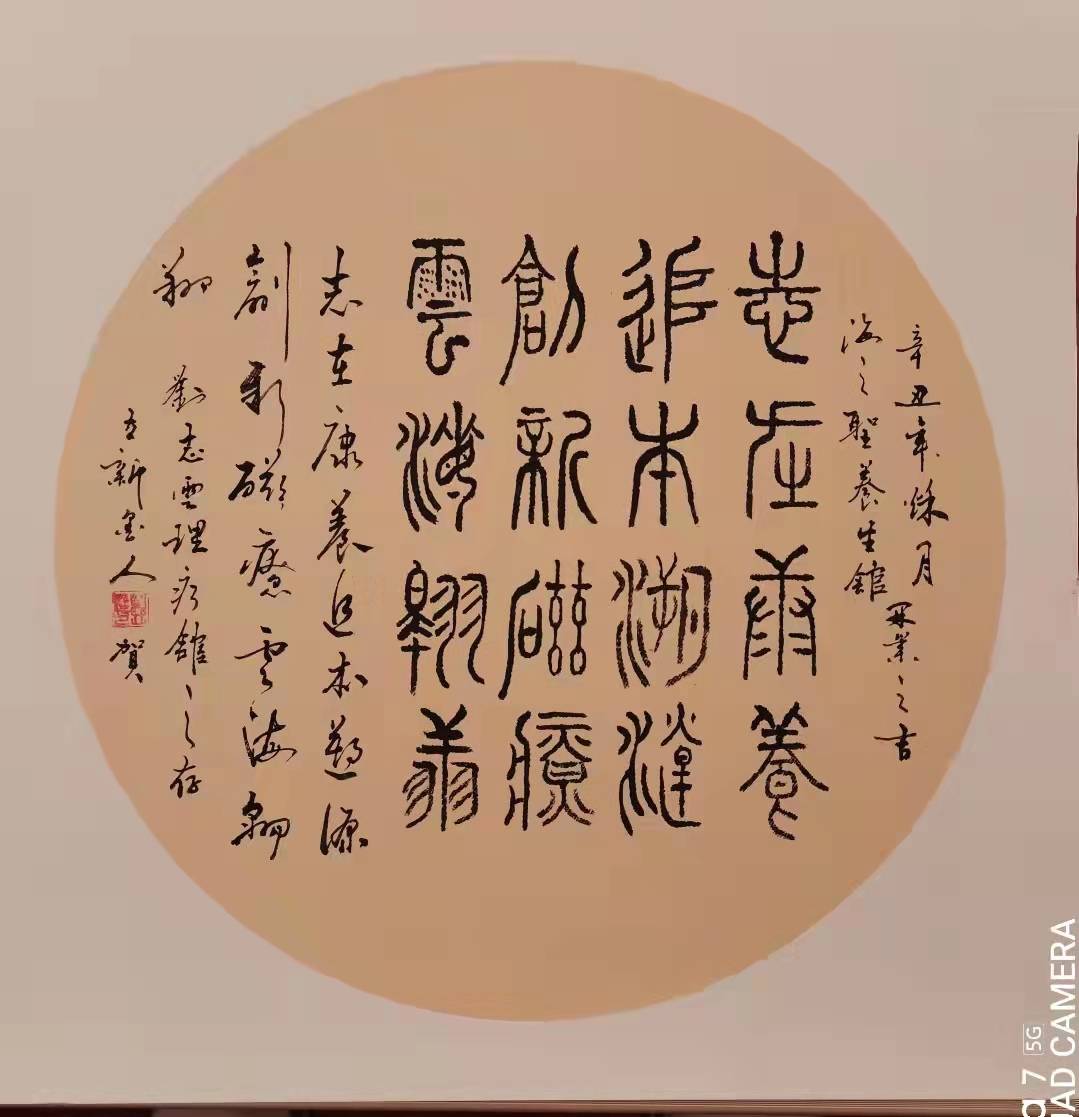 辛丑年秌月開業之吉
海之聖養生館
志在康養
追本溯源
創新磁療
雲海翱翔
志在康養追本溯源
創新磁療雲海翱
翔
劉志雲理疗館之存
古新墨人
賀
7 5G
AD CAMERA